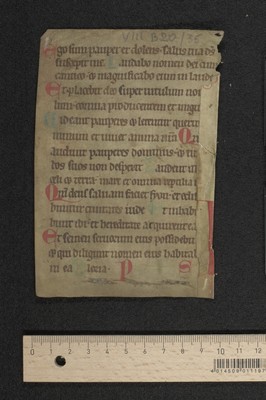 VIII B 20/35
ego sum pauper et dolens salus tua ds
suscepit me Laudabo nomen dei cum
cantico et magnificabo eum in laude
Et placebit deo super vitulum novel
lum cornua producentem et ungu
Videant pauperes et letentur querite
dominum et vivet anima vra Qm
exaudivit pauperes dominus et vin
ctos suos non despexit Laudent illum
celi et terra mare et omnia reptilia in
Qm deus salvam faciet syon et edifi
buntur civitates iude Et inhabi
bunt ibi et hereditate acquirent ea
Et semen servorum eius possidebit
et qui diligunt nomen eius habitab
in ea
P S
0 1 2 3 4 5 6 7 8 9 10 11 12